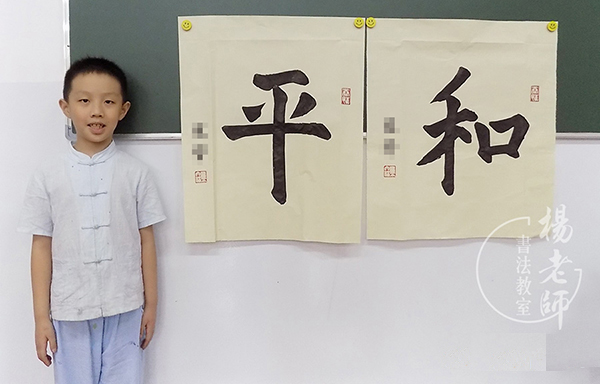 和平
楊老師
書法教室